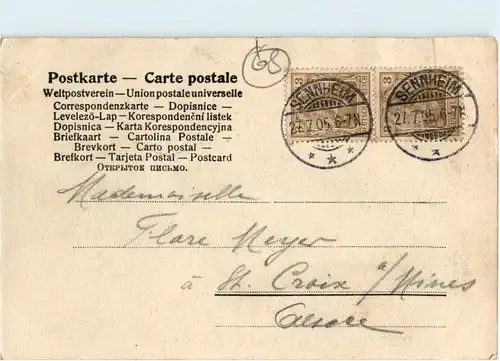 68
Postkarte — Carte postale
Weltpostverein — Union postale universelle
Correspondenzkarte — Dopisnice —
Levelező-Lap — Korespondenční listek
Dopisnica — Karta Korespondencyjna
Briefkaart — Cartolina Postale —
Brevkort — Carto postal —
Brefkort — Tarjeta Postal — Postcard
Открытое письмо.
3 3
SENNHEIM
21.7.05. 6-7N
SENNHEIM
21.7.05. 6-7N
Mademoiselle
Flore Meyer
à St. Croix a/Mines
Alsace